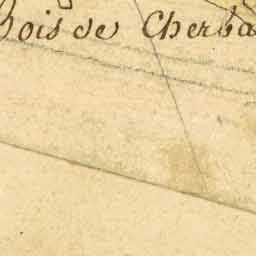 Bois de Cherba